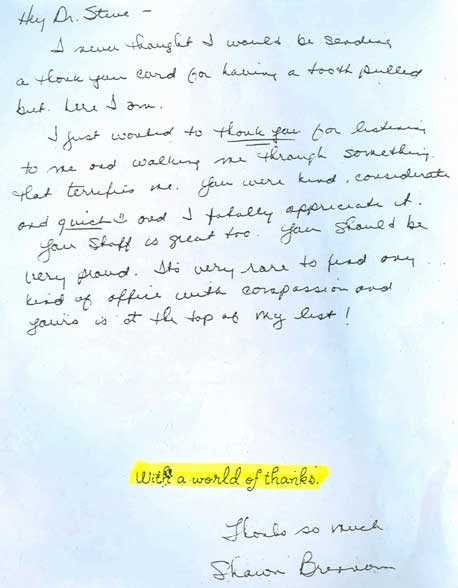 Hey Dr. Steve -
I never thought I would be sending
a thank you card for having a tooth pulled
but here I am.
I just wanted to thank you for listening
to me and walking me through something
that terrifies me. You were kind, considerate
and quick!! and I totally appreciate it.
Your staff is great too. You should be
very proud. It's very rare to find any
kind of office with compassion and
yours is at the top of my list!
With a world of thanks.
Thanks so much
Shawn